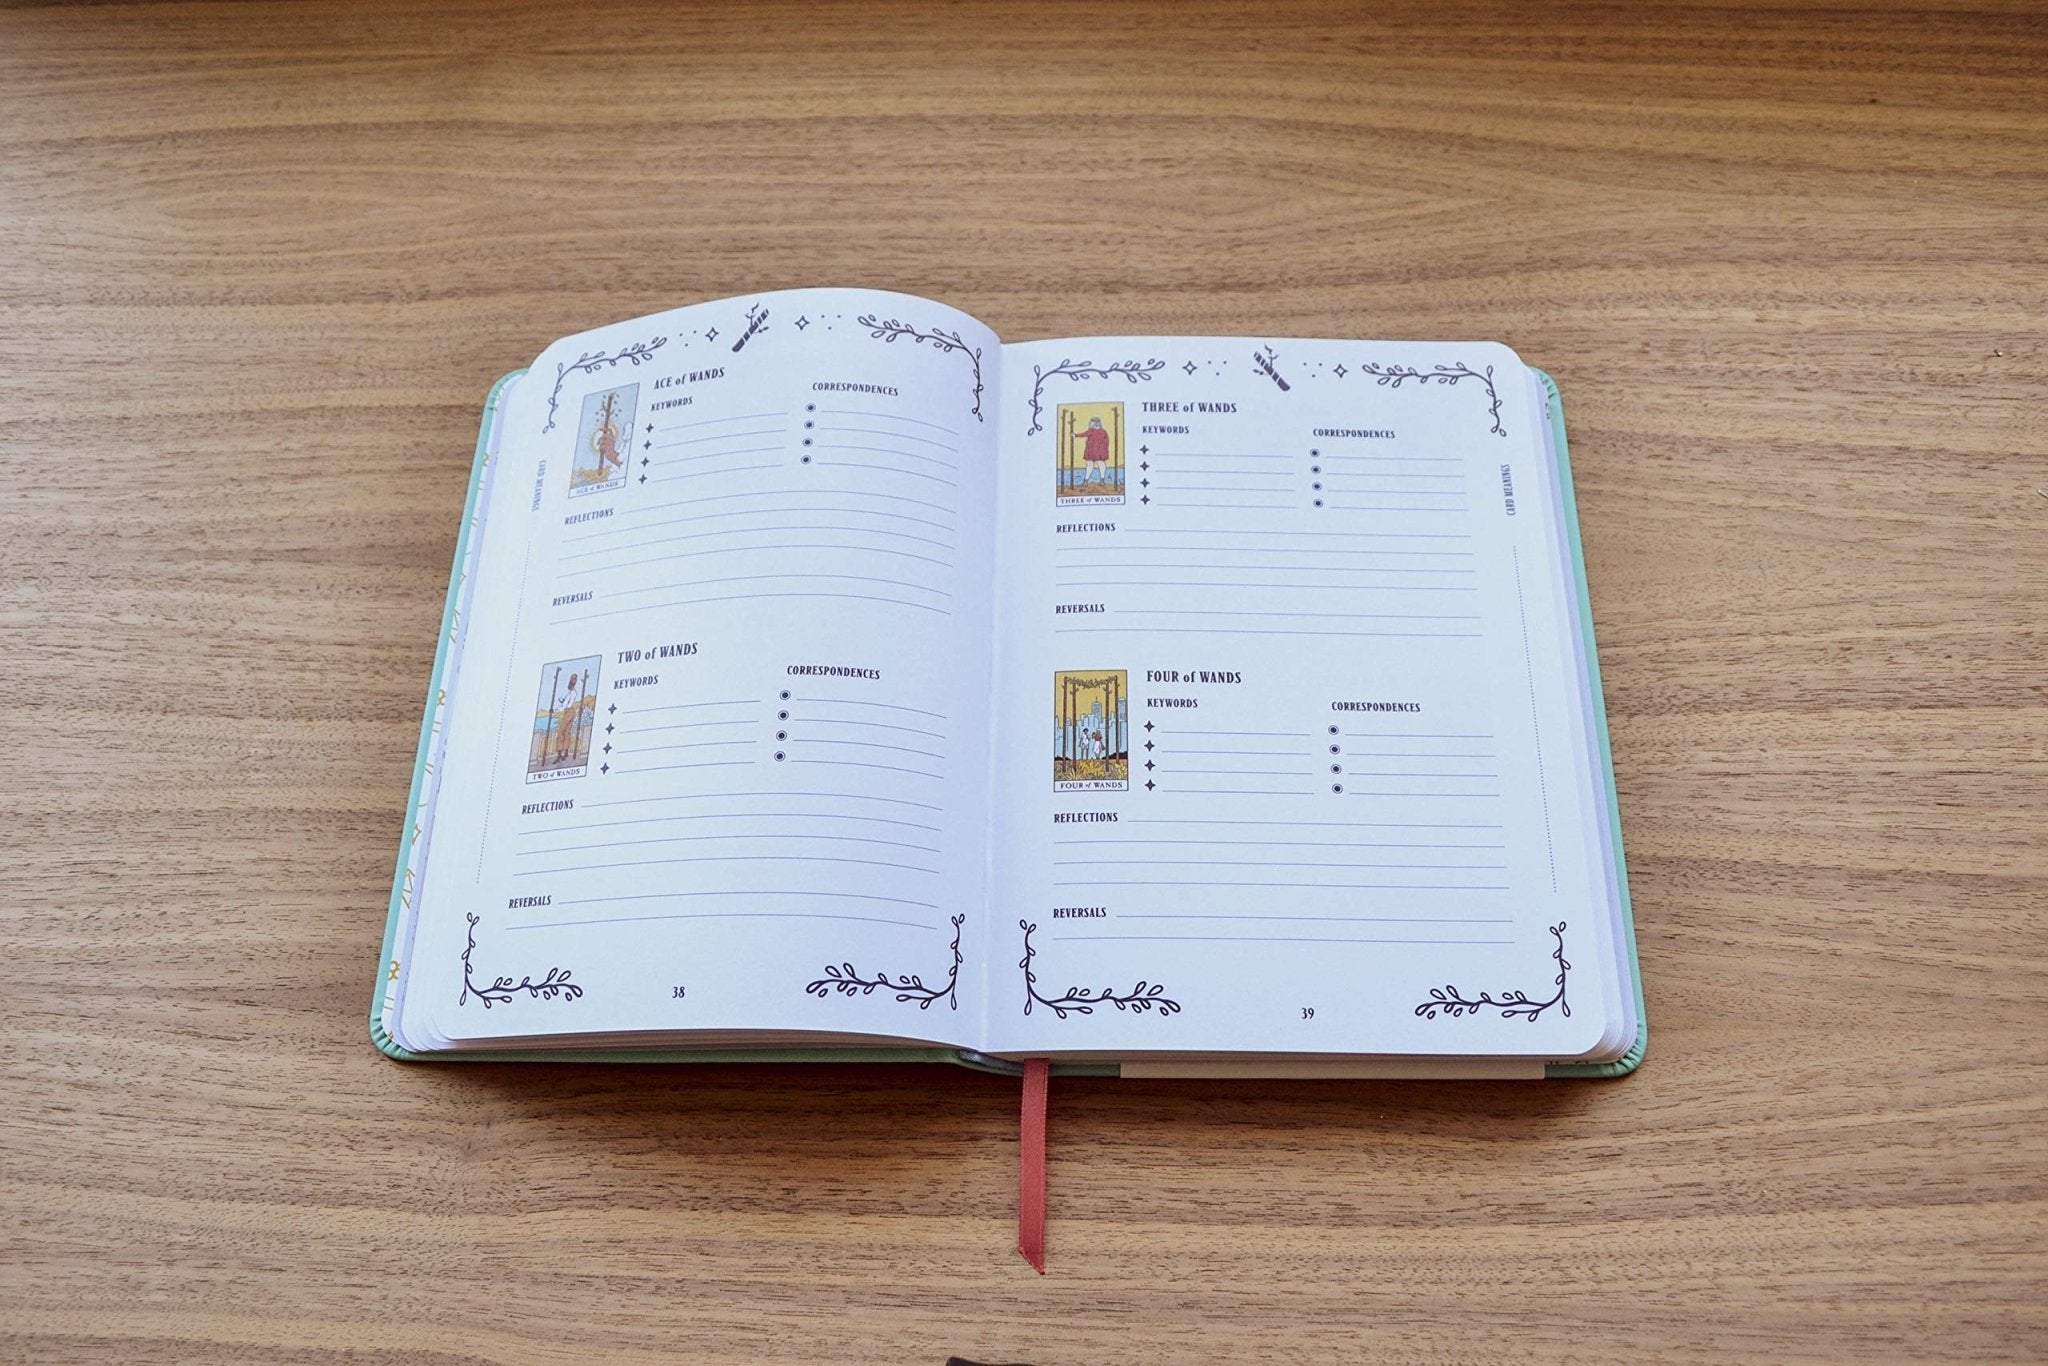 ACE of WANDS
KEYWORDS
CORRESPONDENCES
ACE of WANDS
REFLECTIONS
REVERSALS
CARD MEANINGS
TWO of WANDS
KEYWORDS
CORRESPONDENCES
TWO of WANDS
REFLECTIONS
REVERSALS
38
THREE of WANDS
KEYWORDS
CORRESPONDENCES
THREE of WANDS
REFLECTIONS
REVERSALS
CARD MEANINGS
FOUR of WANDS
KEYWORDS
CORRESPONDENCES
FOUR of WANDS
REFLECTIONS
REVERSALS
39